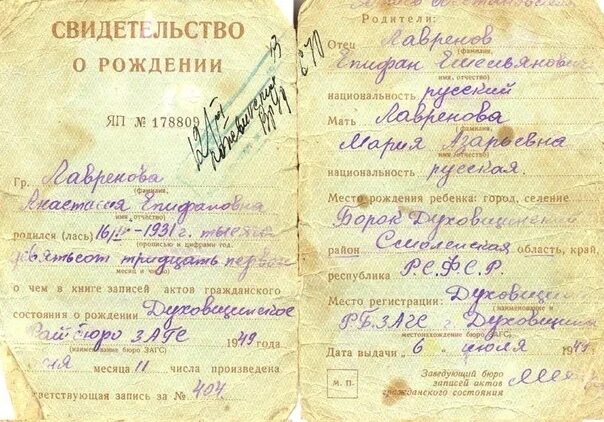 СВИДЕТЕЛЬСТВО
О РОЖДЕНИИ
ЯП № 178809
Гр. Лавренова
(фамилия,
Анастасия Епифановна
имя, отчество)
родился (лась) 16/ -1931 г. тысяча
(прописью и цифрами год,
девятьсот тридцать первого
месяц и число)
о чем в книге записей актов гражданского
состояния о рождении Духовщинское
Райбюро ЗАГС 1949 года
(наименование бюро ЗАГС)
месяца 11 числа произведена
тветствующая запись за № 404
Родители:
Отец Лавренов
(фамилия,
Епифан Емельянович
имя, отчество)
национальность русский
Мать Лавренова
(фамилия,
Мария Азарьевна
имя, отчество)
национальность русская.
Место рождения ребенка: город, селение
Борок Духовщинский
район Смоленская область, край,
республика Р.С.Ф.С.Р.
Место регистрации: Духовщин
(наименование и
РБЗАГС г. Духовщина
местонахождение бюро ЗАГС)
Дата выдачи „6 июля 1949
М. П.
Заведующий бюро
записей актов
гражданского состояния